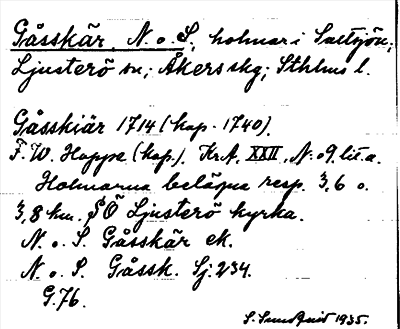 Gåsskär, N. o. S., holmar i Saltsjön;
Ljusterö sn; Åkers skg; Sthlms l.
Gåsskiär 1714 (kop. 1740).
F. W. Hoppe (kop.), Kr.A. XXII, N:o 9. lit. a.
Holmarna belägna resp. 3,6 o.
3,8 km. SÖ Ljusterö kyrka.
N. o. S. Gåsskär ek.
N. o. S. Gåssk. Sj. 234.
G. 76.
S. Sundqvist 1935.